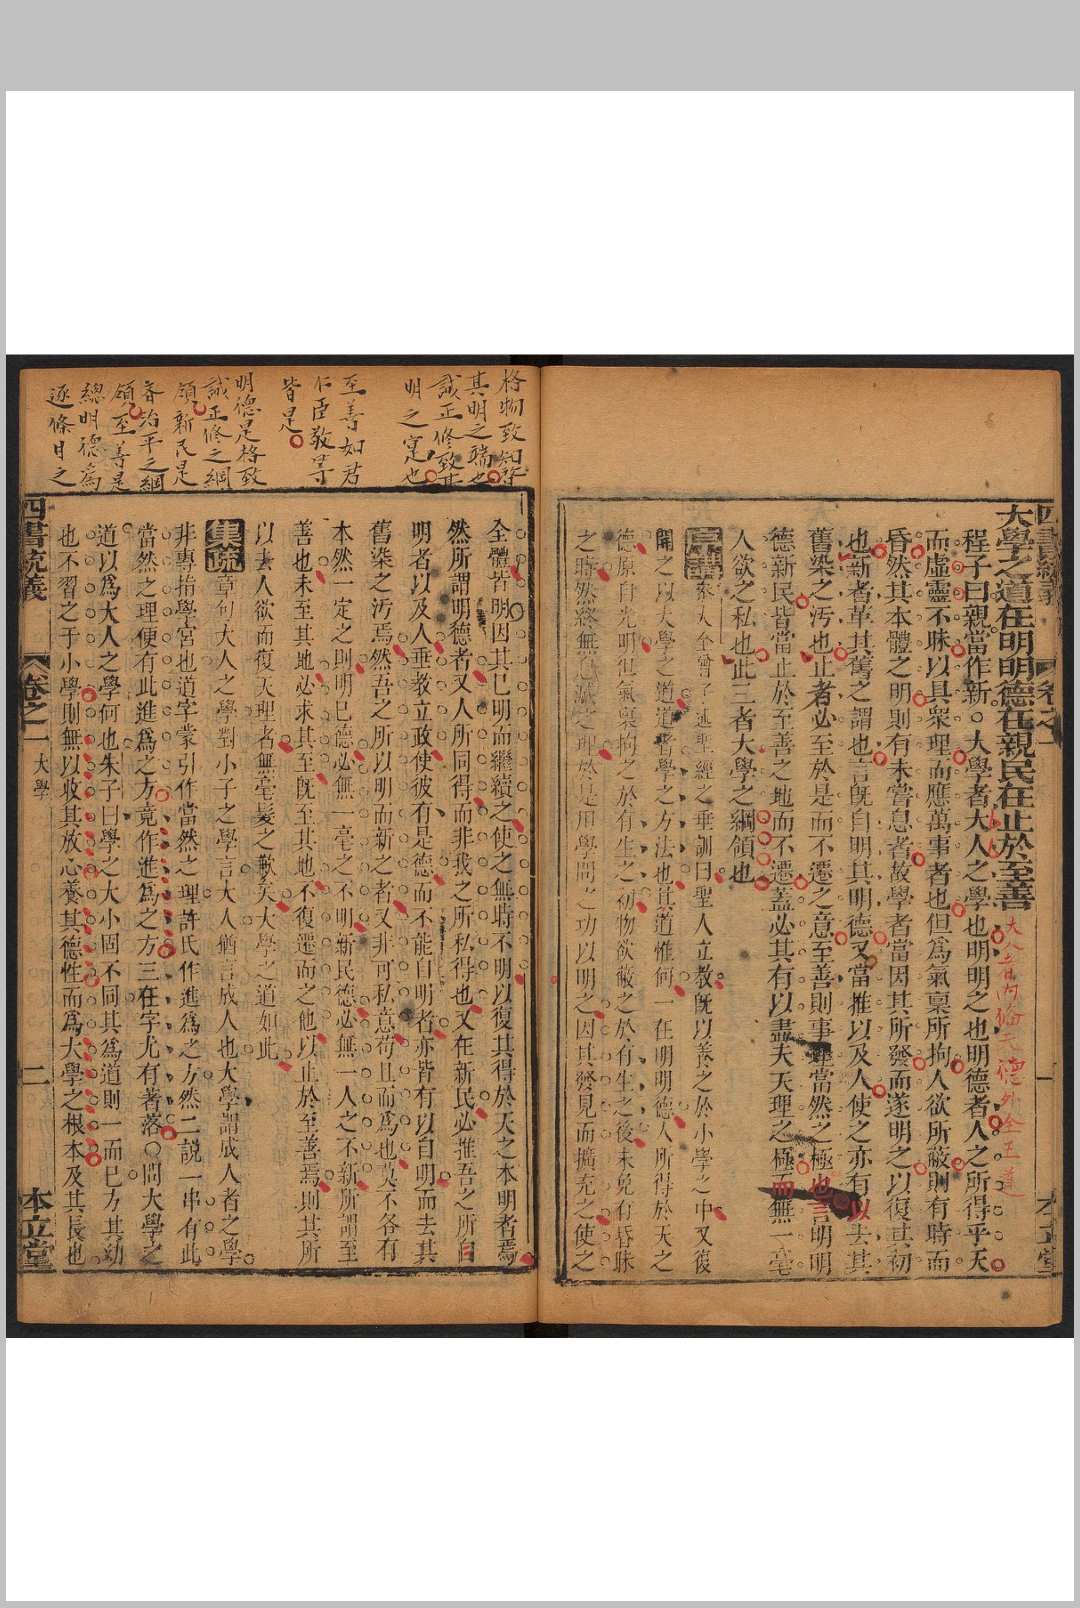 大學之道在明明德在親民在止於至善
程子曰親當作新○大學者大人之學也明明之也明德者人之所得乎天
而虛靈不昧以具眾理而應萬事者也但爲氣稟所拘人欲所蔽則有時而
昏然其本體之明則有未嘗息者故學者當因其所發而遂明之以復其初
也新者革其舊之謂也言旣自明其明德又當推以及人使之亦有以去其
舊染之污也止者必至於是而不遷之意至善則事理當然之極也言明明
德新民皆當止於至善之地而不遷蓋必其有以盡夫天理之極而無一毫
人欲之私也此三者大學之綱領也
大全曾子述聖經之垂訓曰聖人立教旣以養之於小學之中又復
開之以大學之道道者學之方法也其道惟何一在明明德人所得於天之
德原自光明但氣稟拘之於有生之初物欲蔽之於有生之後未免有昏昧
之時然終無息滅之理於是用學問之功以明之因其發見而擴充之使之
格物致知啓
其明之端也
誠正修致其
明之寔也
至善如君
仁臣敬等
皆是
明德是格致
誠正修之綱
領新民是
齊治平之綱
領至善是
總明德爲
逐條目之
全體皆明因其已明而繼續之使之無時不明以復其得於天之本明者焉
然所謂明德者又人所同得而非我之所私得也又在新民必推吾之所自
明者以及人垂教立政使彼有是德而不能自明者亦皆有以自明而去其
舊染之污焉然吾之所以明而新之者又非可私意苟且而爲也莫不各有
本然一定之則明已德必無一毫之不明新民德必無一人之不新所謂至
善也未至其地必求其至旣至其地不復遷而之他以止於至善焉則其所
以去人欲而復天理者無毫髮之歉矣大學之道如此
集疏章句大人之學對小子之學言大人猶言成人也大學謂成人者之學
非專指學宮也道字蒙引作當然之理許氏作進爲之方然二說一串有此
當然之理便有此進爲之方竟作進爲之方三在字尤有著落○問大學之
道以爲大人之學何也朱子曰學之大小固不同其爲道則一而已方其幼
也不習之于小學則無以收其放心養其德性而爲大學之根本及其長也
四書統義
卷之一
大學
二
本立堂